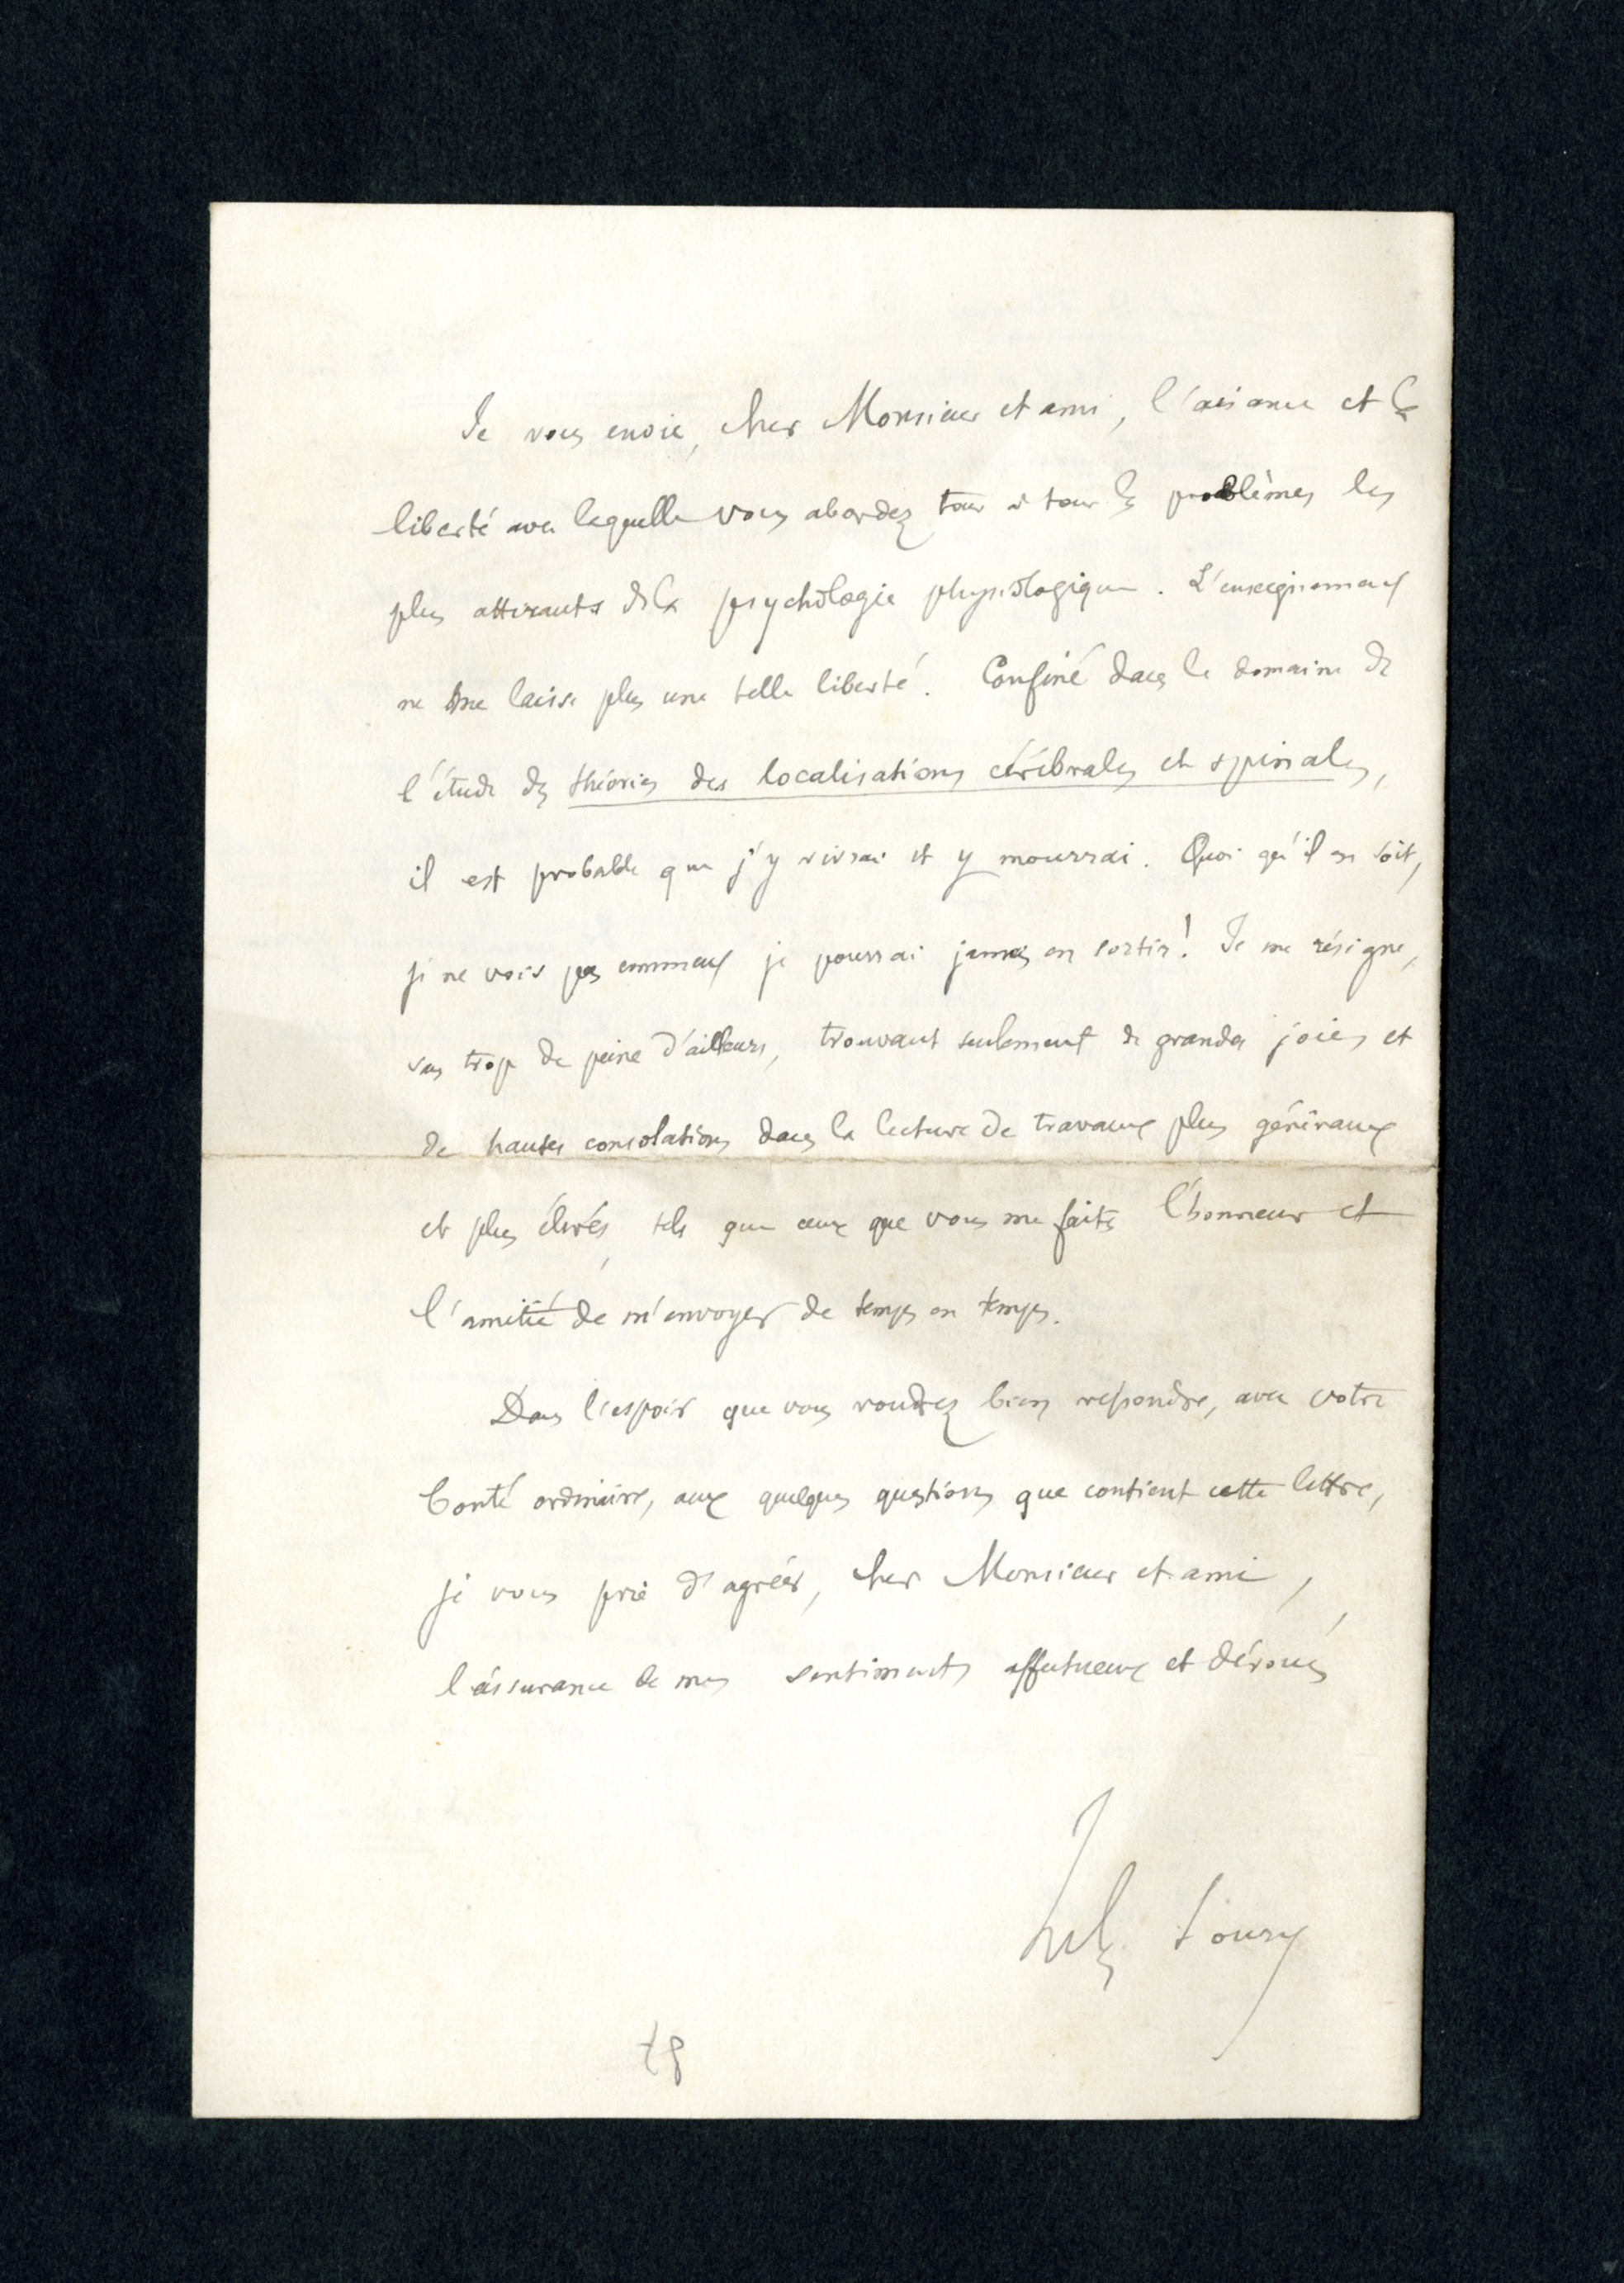 Je vous envie, cher Monsieur et ami, l'aisance et la
liberté avec laquelle vous abordez tour à tour les problèmes les
plus attirants de la psychologie physiologique. L'enseignement
ne me laisse plus une telle liberté. Confiné dans le domaine de
l'étude des théories des localisations cérébrales et spinales,
il est probable que j'y vivrai et y mourrai. Quoi qu'il en soit,
je ne vois pas comment je pourrai jamais en sortir! Je me résigne,
sans trop de peine d'ailleurs, trouvant seulement de grandes joies et
de hautes consolations dans la lecture de travaux plus généraux
et plus élevés, tels que ceux que vous me faites l'honneur et
l'amitié de m'envoyer de temps en temps.
Dans l'espoir que vous voudrez bien répondre, avec votre
bonté ordinaire, aux quelques questions que contient cette lettre,
je vous prie d'agréer, cher Monsieur et ami,
l'assurance de mes sentiments affectueux et dévoués
Jules Soury